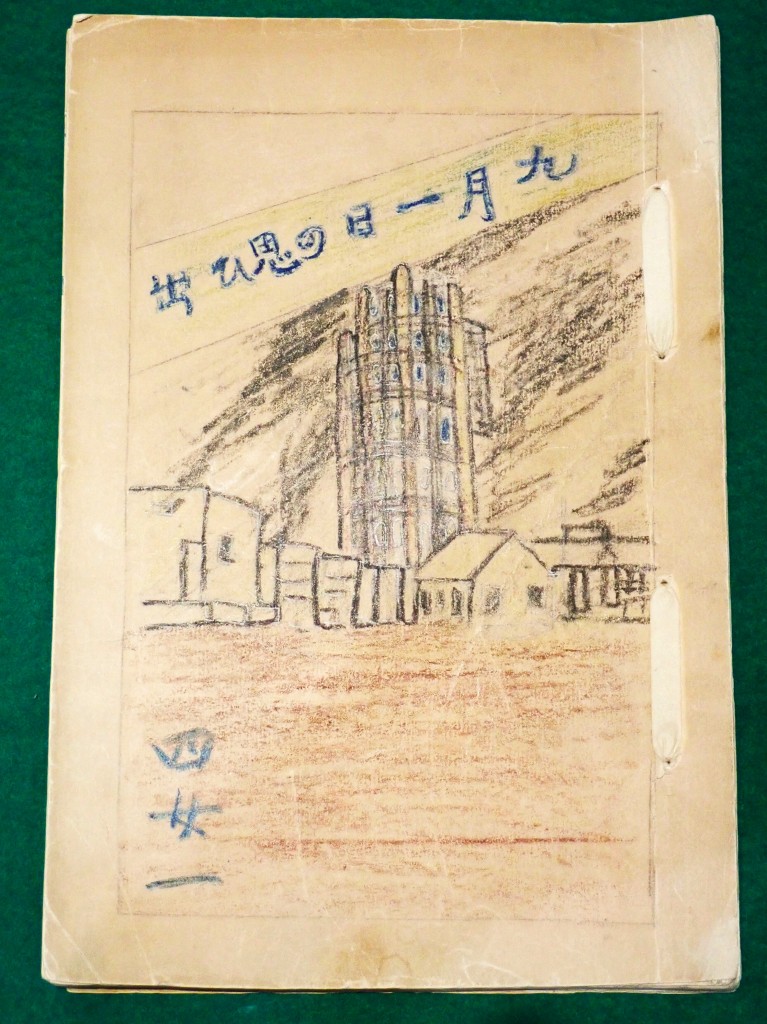 九月一日の思ひ出
四女一